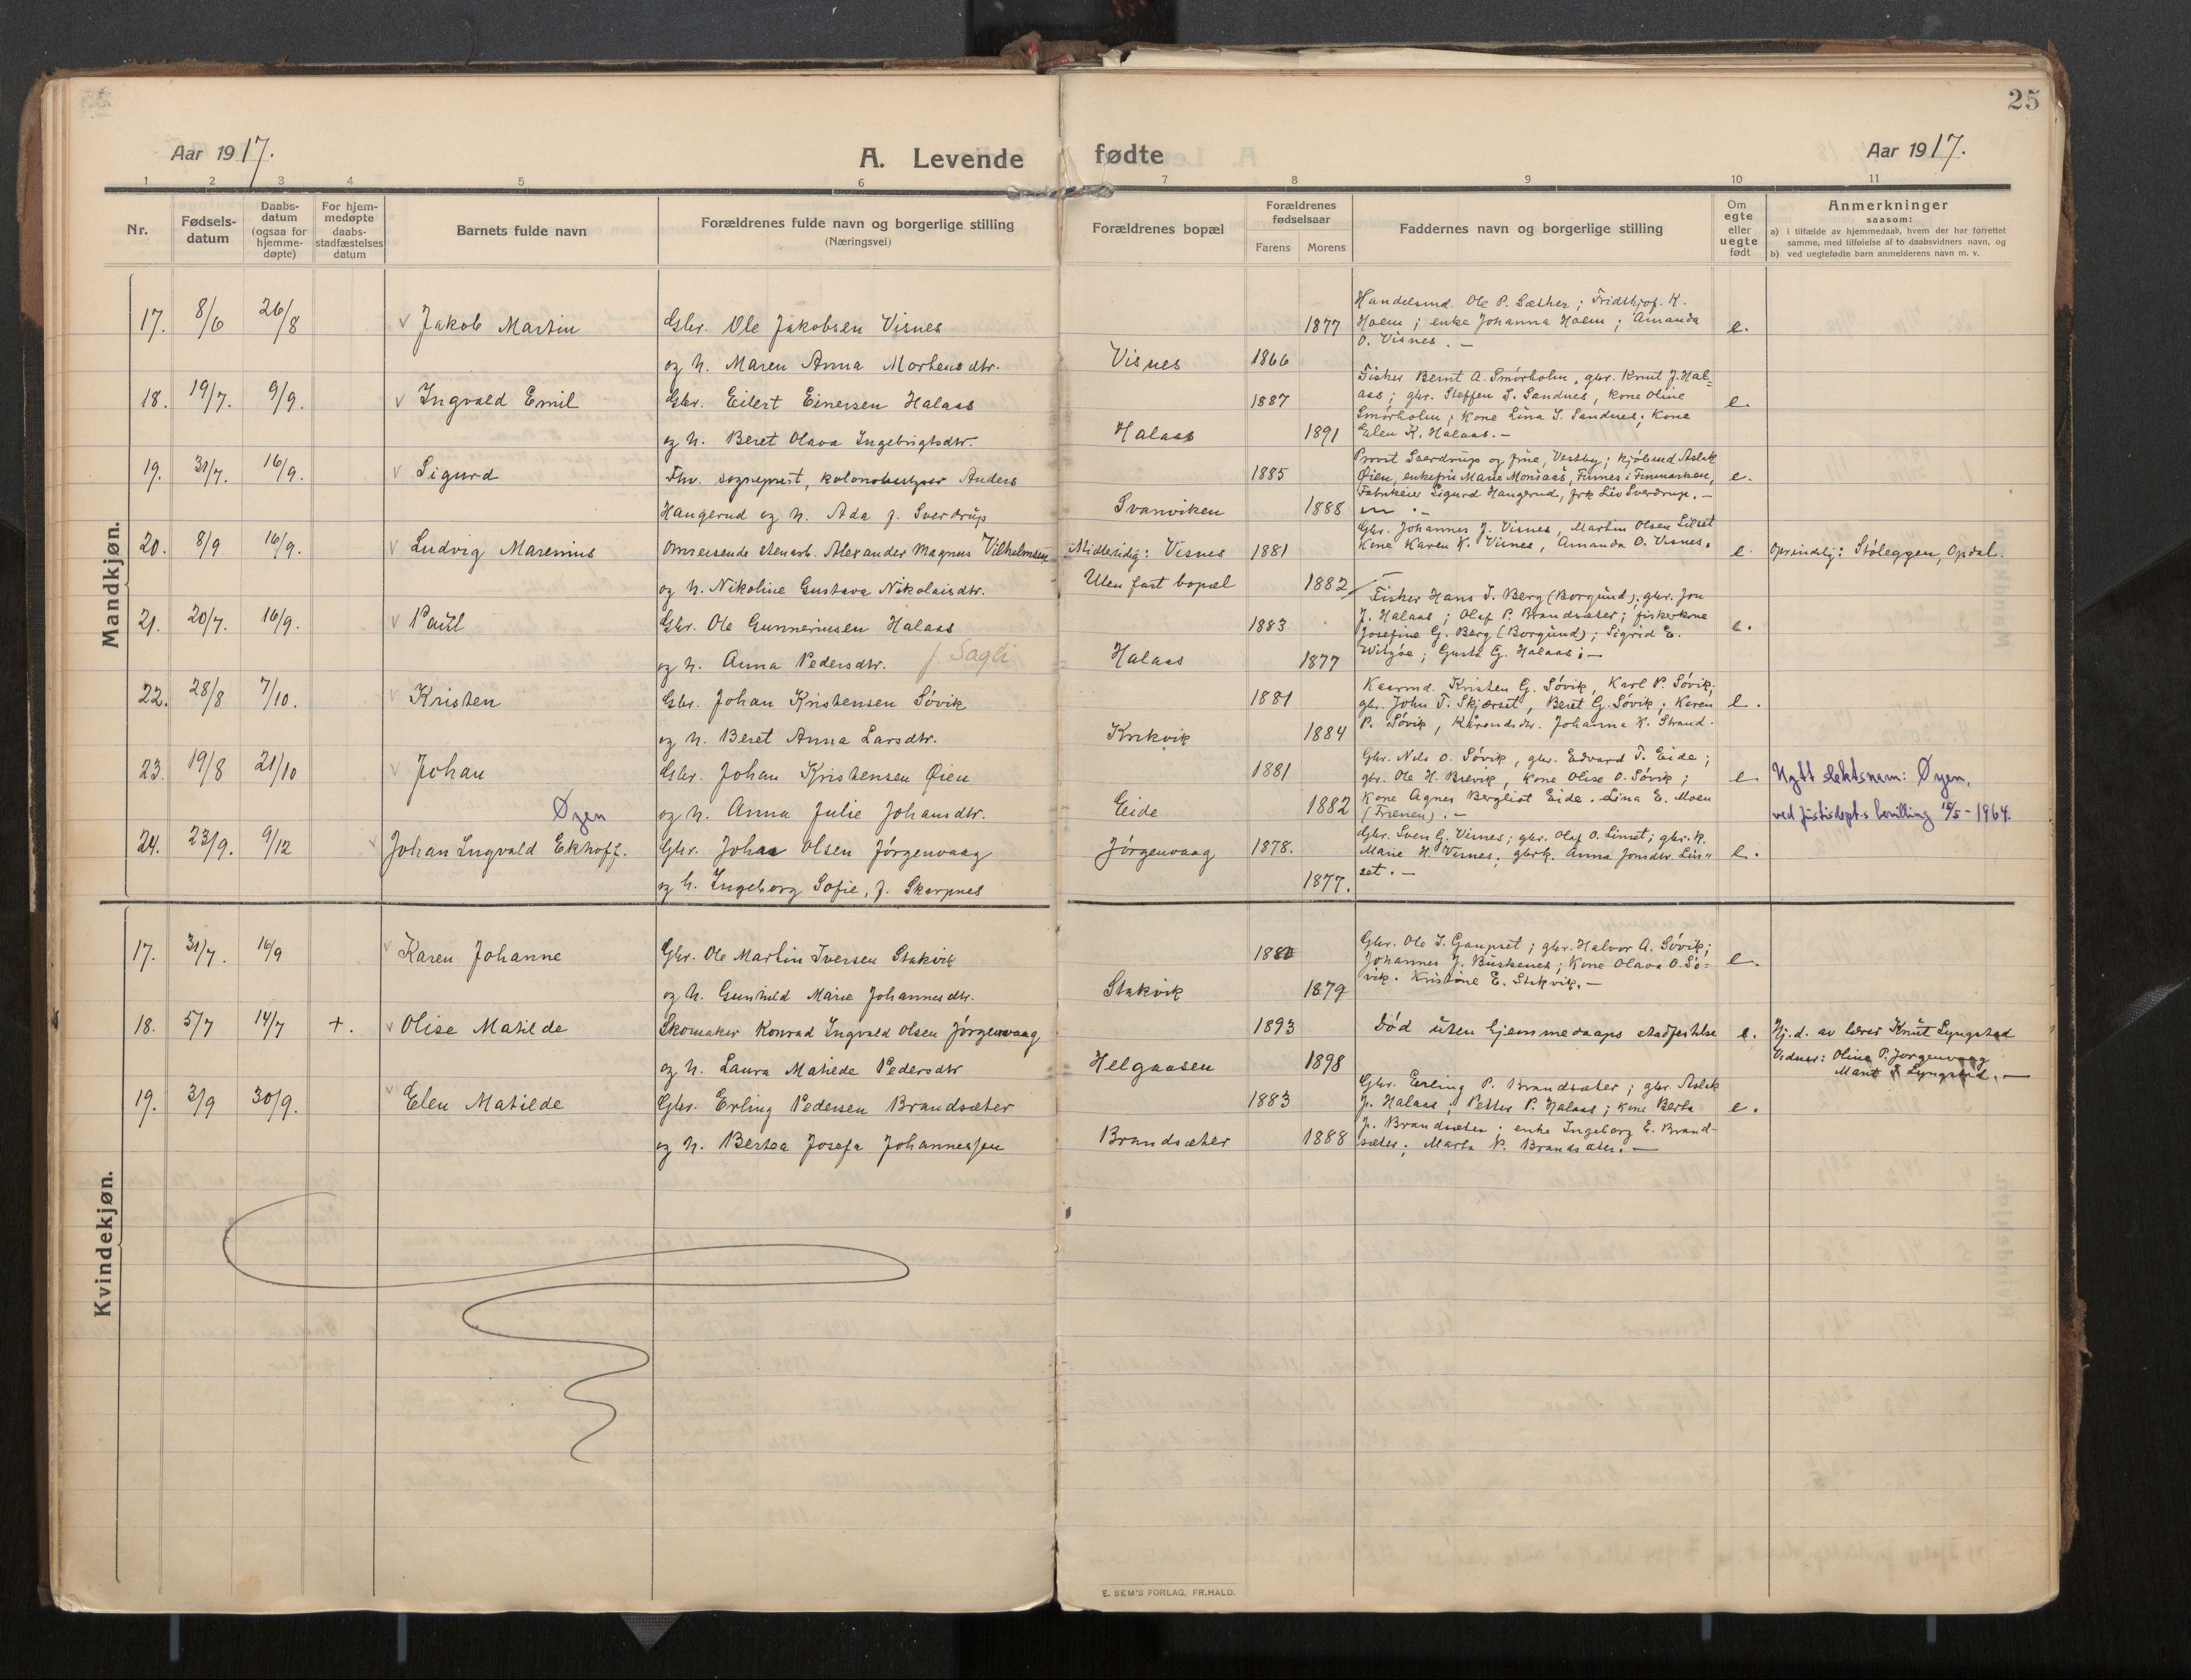 25
Aar 1917.
A. Levende
fødte
Aar 1917.
1 2 3 4 5 6 7 8 9 10 11
Nr.
Fødsels-
datum
Daabs-
datum
(ogsaa for
hjemme-
døpte)
For hjem-
medøpte
daabs-
stadfæstelses
datum
Barnets fulde navn
Forældrenes fulde navn og borgerlige stilling
(Næringsvei)
Forældrenes bopæl
Forældrenes
fødselsaar
Farens Morens
Faddernes navn og borgerlige stilling
Om
egte
eller
uegte
født
Anmerkninger
saasom:
a) i tilfælde av hjemmedaab, hvem der har forrettet
samme, med tilføielse af to daabsvidners navn, og
b) ved uegtefødte barn anmelderens navn m. v.
Mandkjøn.
17. 8/6 26/8 v Jakob Martin
Gbr. Ole Jakobsen Visnes
og h. Maren Anna Mortensdtr.
Visnes 1866 1877
Handelsmd. Ole P. Sæther; Fridthjof. K.
Holm; enke Johanna Holm; Amanda
O. Visnes. —
e.
18. 19/7. 9/9. v Ingvald Emil
Gbr. Eilert Einersen Halaas
og h. Beret Olava Ingebrigtsdtr.
Halaas 1887 1891
Fisker Bernt A. Smørholm, gbr. Knut J. Hal=
aas; gbr. Steffen S. Sandnes, kone Oline
Smørholm; kone Lina S. Sandnes; kone
Elen K. Halaas. —
e.
19. 31/7. 16/9. v Sigurd
Fhv. sogneprest, kolonobestyrer Anders
Haugerud og h. Ada f. Sverdrup
Svanviken 1885 1888
Provst Sverdrup og frue, Vestby; kjøbmd Aslak
Øien, enkefru Marie Monsaas, Finnes i Finmarken,
Fabrikeier Sigurd Haugerud, frk Liv Sverdrup. —
e.
20. 8/9 16/9. v Ludvig Marenius
Omreisende stenarb. Alexander Magnus Vilhelmsen
og h. Nikoline Gustava Nikolaisdtr.
Midlertidig: Visnes
Uten fast bopæl
1881 1882
Gbr. Johannes J. Visnes, Martin Olsen Lilset
Kone Karen K. Visnes, Amanda O. Visnes.
e. Oprindelig: Støleggen, Opdal.
21. 20/7. 16/9. v Paul
Gbr. Ole Gunneriusen Halaas
og h. Anna Pedersdtr. f. Sagli
Halaas 1883 1877
Fisker Hans I. Berg (Borgund); gbr. Jon
J. Halaas; Olaf P. Brandsæter; fiskerkone
Josefine G. Berg (Borgund); Sigrid E.
Witzøe; Gusta G. Halaas; —
e.
22. 28/8 7/10. v Kristen
Gbr. Johan Kristensen Søvik
og h. Beret Anna Larsdtr.
Krikvik 1881 1884
Kaarmd. Kristen G. Søvik, Karl P. Søvik,
gbr. John T. Skjærset, Beret G. Søvik; Karen
P. Søvik, Kårmdsdtr. Johanna K. Strand.
e.
23. 19/8 21/10 v Johan
Øyen
Gbr. Johan Kristensen Øien
og h. Anna Julie Johansdtr.
Eide 1881 1882
Gbr. Nils O. Søvik, gbr. Edvard T. Eide;
gbr. Ole H. Brevik, kone Olise O. Søvik;
kone Agnes Bergliot Eide. Lina E. Moen
(Frænen). —
e. Nytt slektsnavn: Øyen,
ved Justisdept.s bevilling 15/5-1964.
24. 23/9. 9/12 v Johan Ingvald Ekhoff.
Gbr. Johan Olsen Jørgenvaag
og h. Ingeborg Sofie, f. Skarpnes
Jørgenvaag 1878. 1877.
Gbr. Sven G. Visnes; gbr. Olaf O. Linset; gbr. k.
Marie H. Visnes; gbrk. Anna Jonsdtr. Lin"
set. —
e.
Kvindekjøn.
17. 31/7. 16/9 v Karen Johanne
Gbr. Ole Martin Iversen Stakvik
og h. Gunhild Marie Johannesdtr.
Stakvik 1880 1879
Gbr. Ole I. Gaupset; gbr. Halvor A. Søvik;
Johannes J. Buskenes; kone Olava O. Sø=
vik. Kristine E. Stakvik. —
e.
18. 5/7 14/7 +. v Olise Matilde
Skomaker Konrad Ingvald Olsen Jørgenvaag
og h. Laura Matilde Pedersdtr
Helgaasen 1893 1898
Død uten hjemmedaaps stadfestelse
e. Hj.d. av lærer Knut Lyngstad
Vidner: Olina P. Jørgenvaag
Marit Lyngstad. —
19. 3/9 30/9. v Elen Matilde
Gbr. Erling Pedersen Brandsæter
og h. Bertea Josefa Johannessen
Brandsæter 1883 1888
Gbr. Erling P. Brandsæter; gbr. Aslak
J. Halaas; Petter P. Halaas; kone Berta
J. Brandsæter; enke Ingeborg E. Brand-
sæter; Marta P. Brandsæter. —
e.
E. SEM'S FORLAG, FR.HALD.